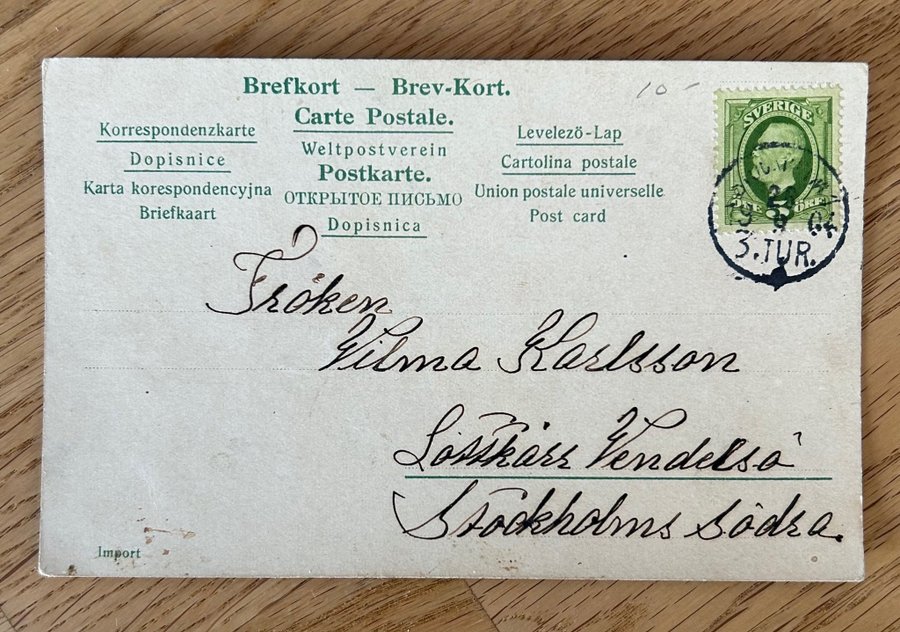 Brefkort — Brev-Kort.
10-
Carte Postale.
Korrespondenzkarte
Weltpostverein
Levelezö-Lap
Dopisnice
Postkarte.
Cartolina postale
Karta korespondencyjna
ОТКРЫТОЕ ПИСЬМО
Union postale universelle
Briefkaart
Dopisnica
Post card
SVERIGE
5
ÖRE
04
3.TUR.
Fröken
Vilma Karlsson
Vendelsö
Stockholms södra.
Import